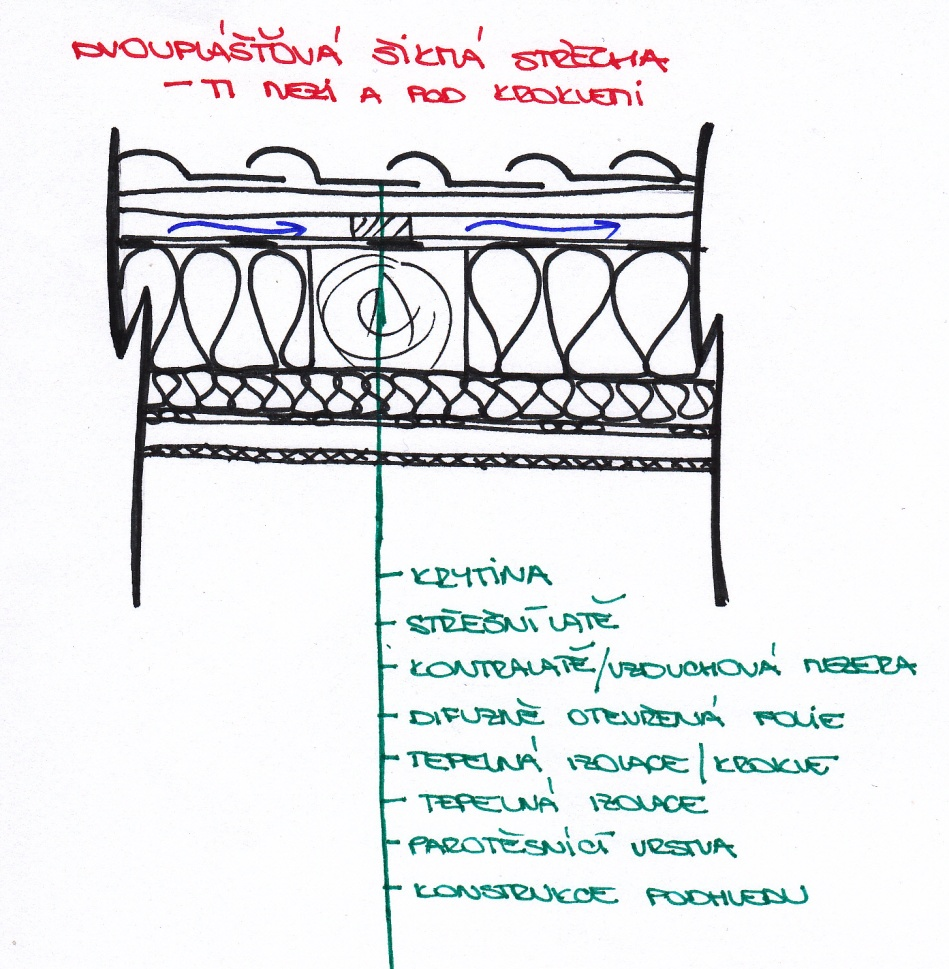 DVOUPLÁŠŤOVÁ ŠIKMÁ STŘECHA
- TI MEZI A POD KROKVEMI
KRYTINA
STŘEŠNÍ LATĚ
KONTRALATĚ/VZDUCHOVÁ MEZERA
DIFUZNĚ OTEVŘENÁ FOLIE
TEPELNÁ IZOLACE/KROKVE
TEPELNÁ IZOLACE
PAROTĚSNÍCÍ VRSTVA
KONSTRUKCE PODHLEDU